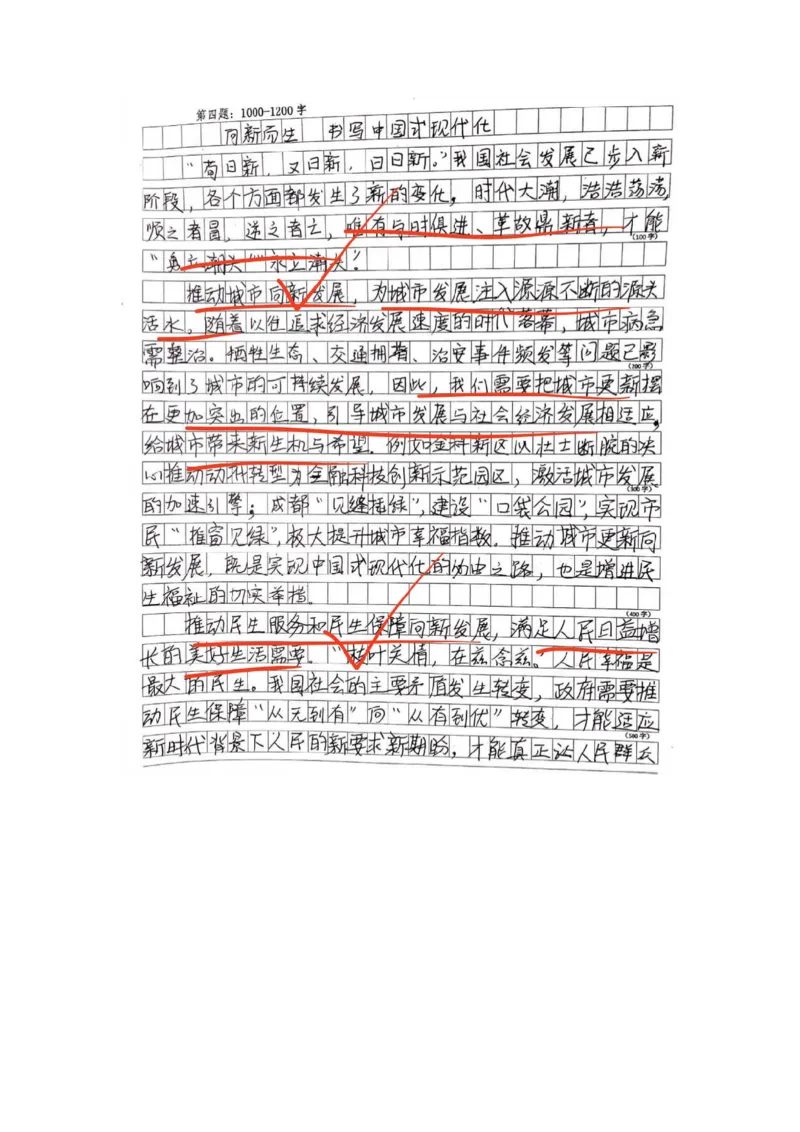 第四题：1000-1200字
向新而生 书写中国式现代化
“苟日新，又日新，日日新。”我国社会发展已步入新
阶段，各个方面都发生了新的变化，时代大潮，浩浩荡荡，
顺之者昌，逆之者亡，唯有与时俱进、革故鼎新者，才能
(100字)
“勇立潮头”“永立潮头”。
推动城市向新发展，为城市发展注入源源不断的源头
活水，随着以往追求经济发展速度的时代落幕，城市病急
需整治。牺牲生态、交通拥堵、治安事件频发等问题已影
(200字)
响到了城市的可持续发展，因此，我们需要把城市更新摆
在更加突出的位置，引导城市发展与社会经济发展相适应，
给城市带来新生机与希望。例如金祥新区以壮士断腕的决
心推动动升转型为金融科技创新示范园区，激活城市发展
(300字)
的加速引擎；成都“见缝插绿”，建设“口袋公园”，实现市
民“推窗见绿”，极大提升城市幸福指数。推动城市更新向
新发展，既是实现中国式现代化的必由之路，也是增进民
生福祉的切实举措。
(400字)
推动民生服务和民生保障向新发展，满足人民日益增
长的美好生活需要。“枝叶关情，在兹念兹。”人民幸福是
最大的民生。我国社会的主要矛盾发生转变，政府需要推
动民生保障“从无到有”向“从有到优”转变，才能适应
(500字)
新时代背景下人民的新要求新期盼，才能真正让人民群众